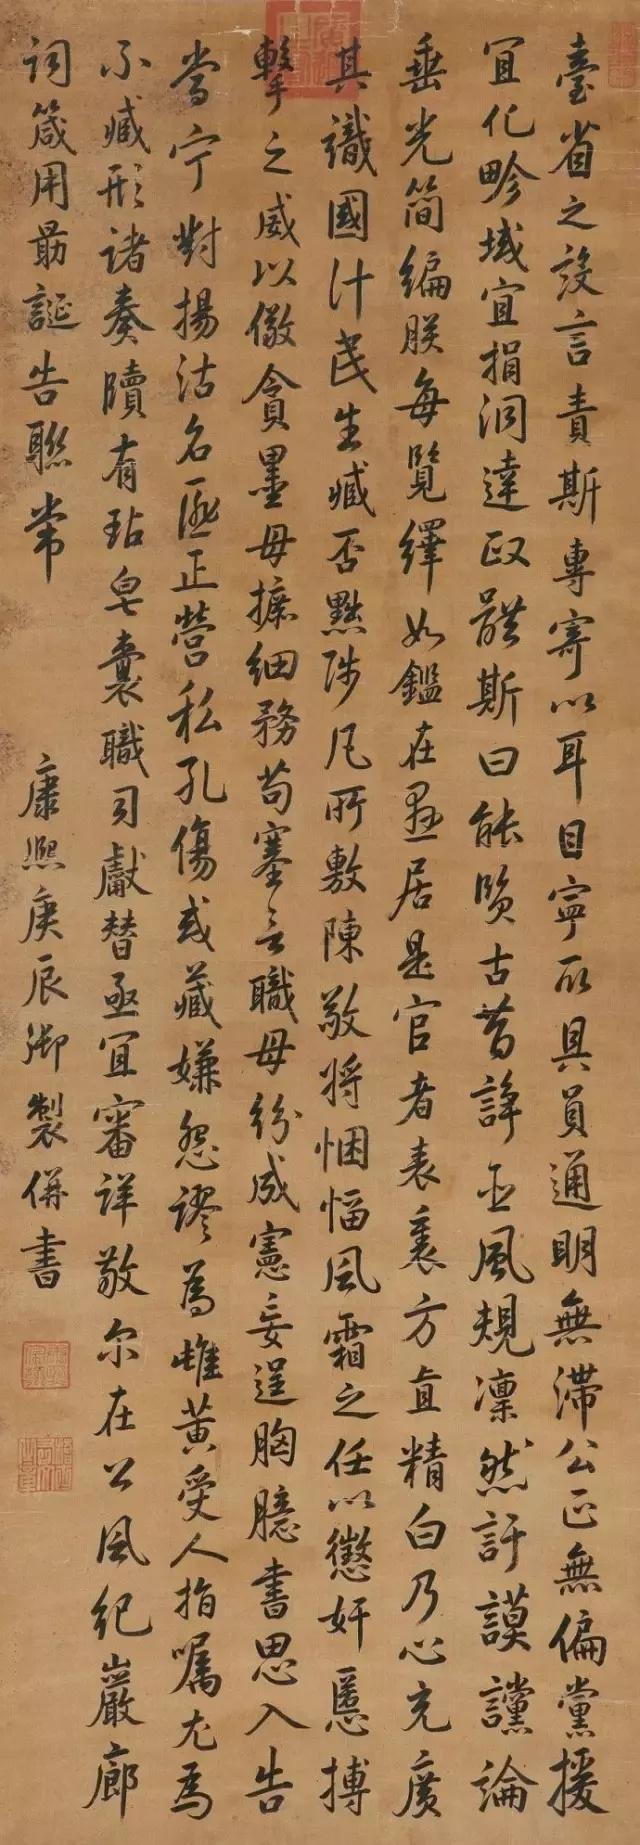 臺省之設言責斯專寄以耳目寧取具員通明無滯公正無偏黨援
宜化畛域宜捐洞達政體斯曰能賢古昔諍臣風規凜然訏謨讜論
垂光簡編朕每覽繹如鑑在懸居是官者表裏方直精白乃心充廣
其識國計民生臧否黜陟凡所敷陳敬將悃愊風霜之任以懲奸慝搏
擊之威以儆貪墨毋摭細務苟塞言職毋紛成憲妄逞胸臆書思入告
當宁對揚沽名匪正營私孔傷或藏嫌怨謬為雌黃受人指嘱尤為
不臧形諸奏牘有玷皂囊職司獻替亟宜審詳敬尔在公風紀巖廊
詞箴用勗誕告聯常
康熙庚辰御製併書